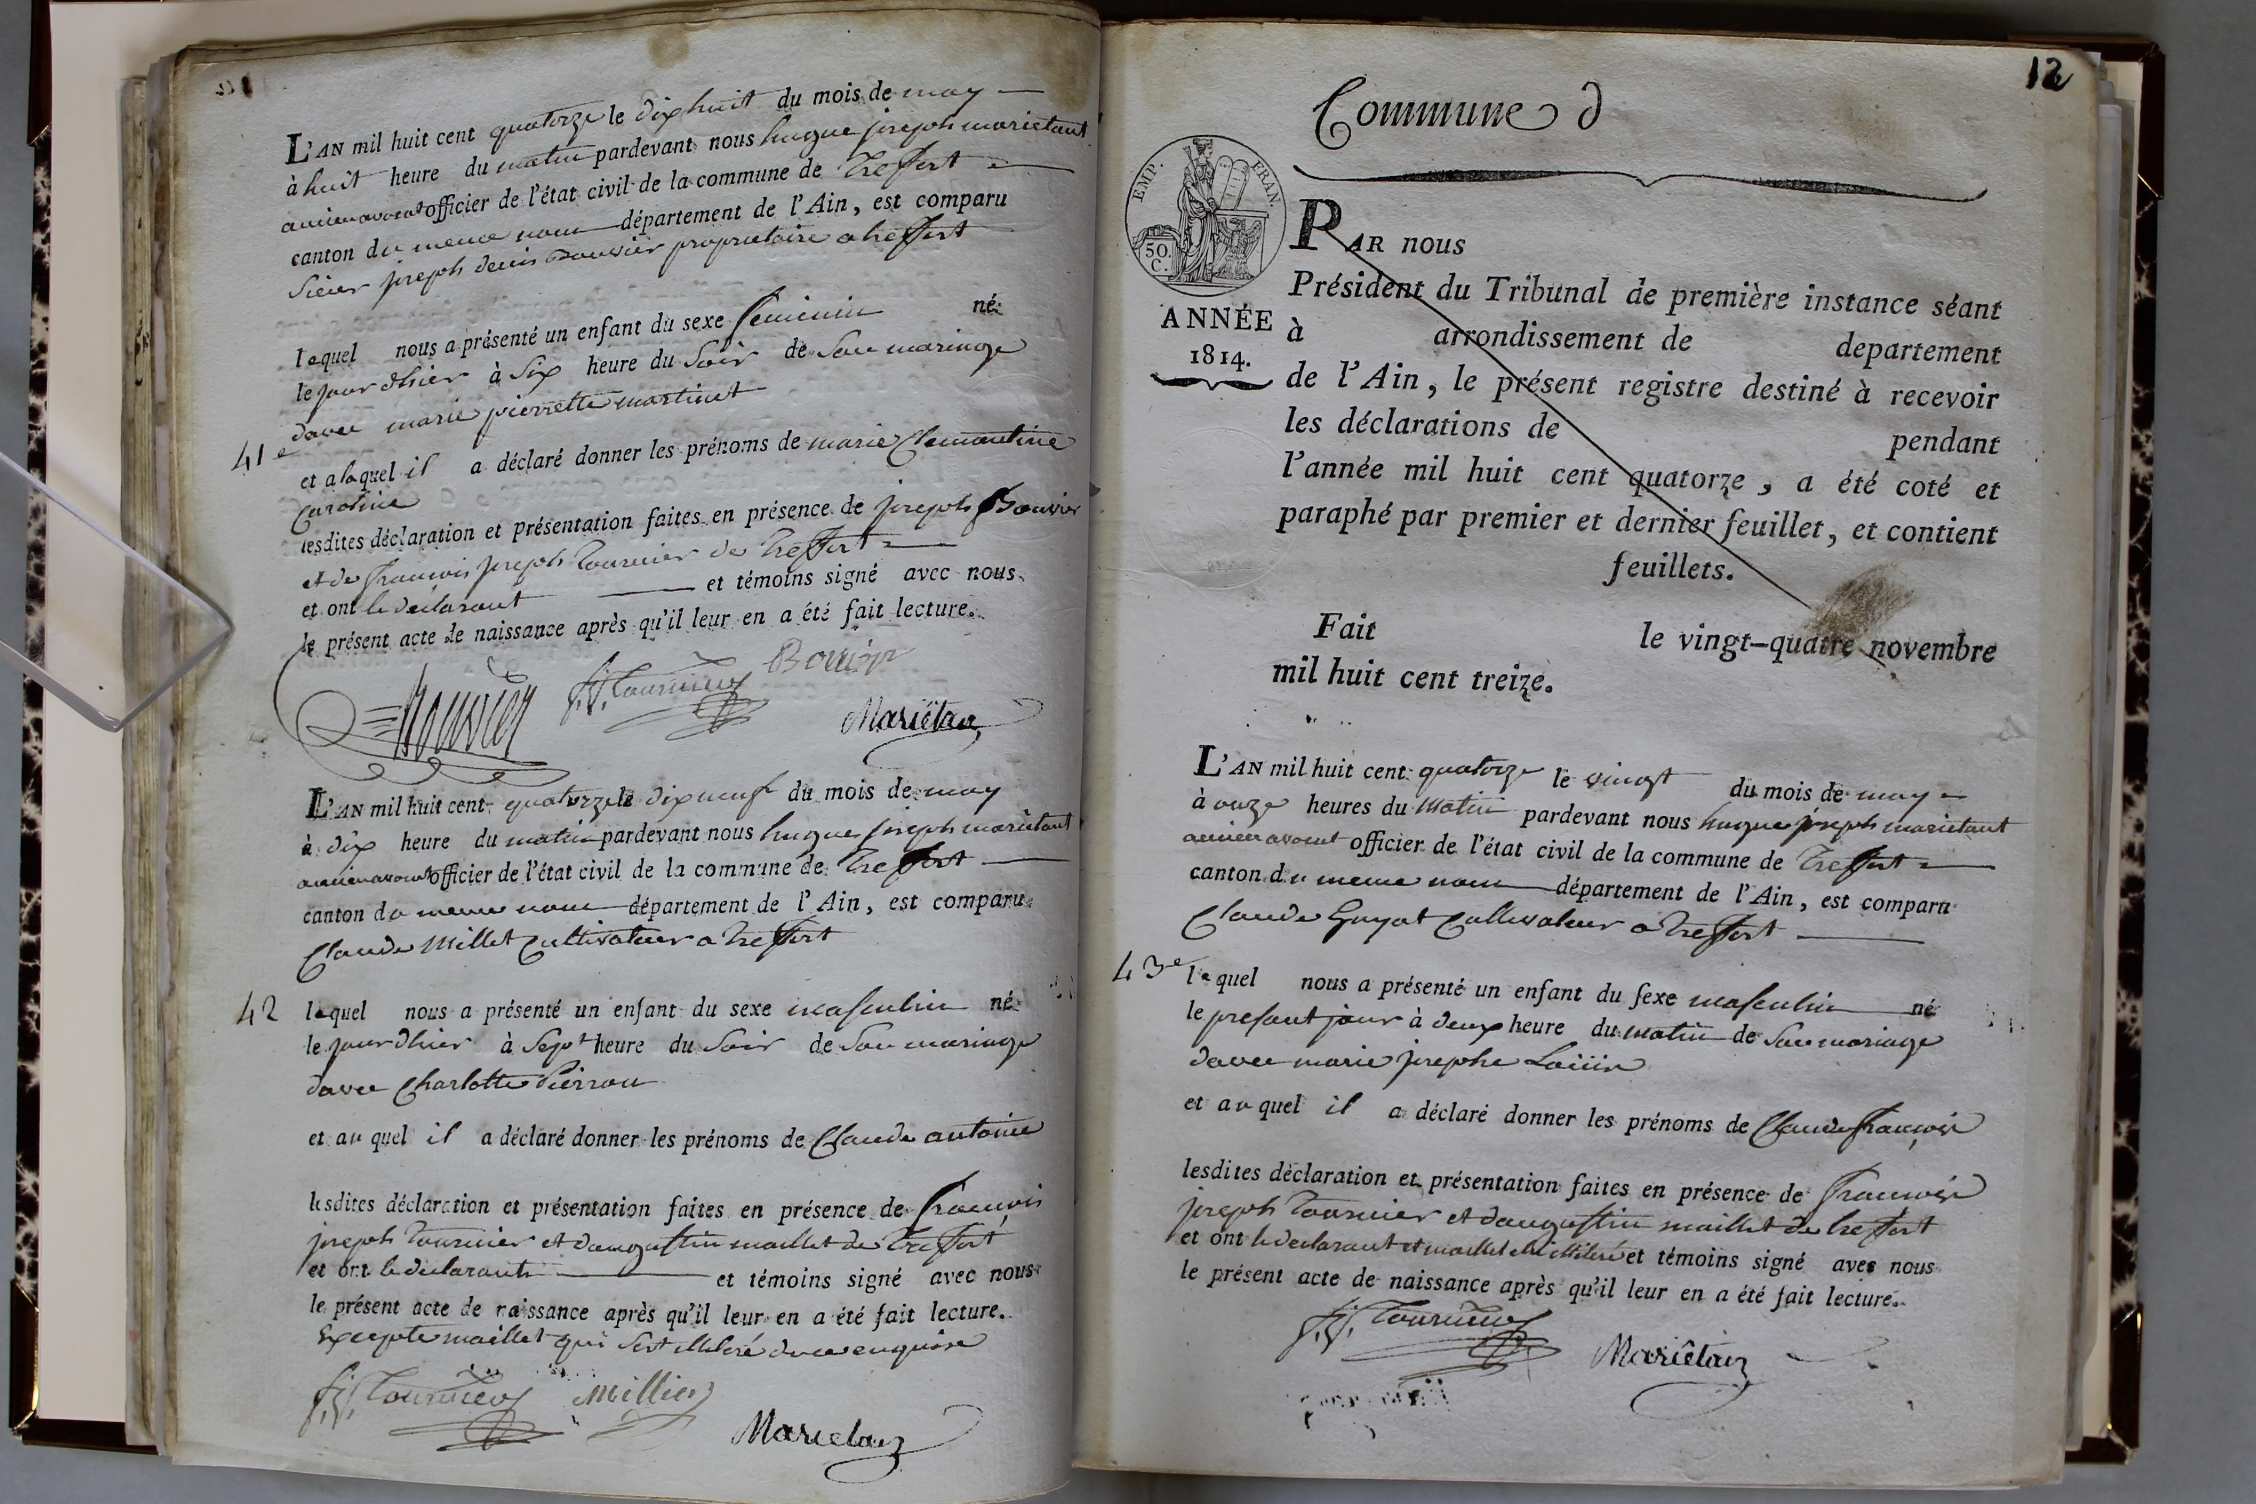 L'AN mil huit cent quatorze le dix huit du mois de may
à huit heure du matin pardevant nous hugue joseph marietant
ancien avocat officier de l'état civil de la commune de Treffort
canton du meme nom département de l'Ain, est comparu
Sieur joseph denis Bouvier proprietaire a treffort
lequel nous a présenté un enfant du sexe feminin né
le jour dhier à Six heure du Soir de Son mariage
davec marie pierrette martinet
41e
et alaquel il a déclaré donner les prénoms de marie Clemantine
Caroline
lesdites déclaration et présentation faites en présence de joseph Bouvier
et de francois joseph Tournier de Treffort
et ont le declarant et témoins signé avec nous
le présent acte de naissance après qu'il leur en a été fait lecture.
Bouvier f.j. Tournier Bouvier
Mariétan
L'AN mil huit cent quatorze le dix neuf du mois de may
à dix heure du matin pardevant nous hugue joseph marietant
ancien avocat officier de l'état civil de la commune de Treffort
canton du meme nom département de l'Ain, est comparu
Claude Millet Cultivateur a Treffort
42
lequel nous a présenté un enfant du sexe masculin né
le jour dhier à Sept heure du Soir de Son mariage
davec Charlotte Pierron
et au quel il a déclaré donner les prénoms de Claude antoine
lesdites déclaration et présentation faites en présence de francois
joseph Tournier et daugustin maillet de Treffort
et ont le declarant et témoins signé avec nous
le présent acte de naissance après qu'il leur en a été fait lecture.
Excepte maillet qui Sest illiteré de ce enquise
f.j. Tournier Millier
Marietan
12
Commune d
EMP. FRAN.
50.
C.
ANNÉE
1814.
PAR nous
Président du Tribunal de première instance séant
à arrondissement de departement
de l'Ain, le présent registre destiné à recevoir
les déclarations de pendant
l'année mil huit cent quatorze, a été coté et
paraphé par premier et dernier feuillet, et contient
feuillets.
Fait le vingt-quatre novembre
mil huit cent treize.
L'AN mil huit cent quatorze le vingt du mois de may
à onze heures du matin pardevant nous hugue joseph marietant
ancien avocat officier de l'état civil de la commune de Treffort
canton du meme nom département de l'Ain, est comparu
Claude Guyot Cultivateur a Treffort
43e
lequel nous a présenté un enfant du sexe masculin né
le presant jour à deux heure du matin de Son mariage
davec marie josephe
et au quel il a déclaré donner les prénoms de Claude francois
lesdites déclaration et présentation faites en présence de francois
joseph Tournier et daugustin maillet de treffort
et ont le declarant et maillet illiteré et témoins signé avec nous
le présent acte de naissance après qu'il leur en a été fait lecture.
f.j. Tournier
Mariétan